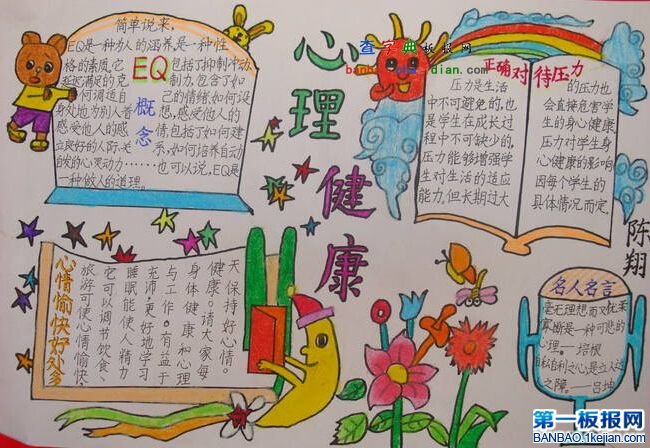 心理健康
查字典板报网
EQ概念
简单说来,
EQ是一种为人的涵养,是一种性
格的素质,它包括了抑制冲动
延迟满足的克制力,包含了如
何调适自己的情绪,如何设
身处地为别人着想,
感受他人的感情,包括了如何建
立良好的人际关系,如何培养自动
自发的心灵动力……也可以说,EQ是
一种做人的道理。
正确对待压力
压力是生活
中不可避免的,也
是学生在成长过
程中不可缺少的,
压力能够增强学
生对生活的适应
能力,但长期过大
的压力也
会直接危害学
生的身心健康
压力对学生身
心健康的影响
因每个学生的
具体情况而定,
陈翔
心情愉快好处多
旅游可使心情愉快
它可以调节饮食、
睡眠能使人精力
充沛,更好地学习
与工作。有益于
身体健康和心理
健康。请大家每
天保持好心情。
名人名言
毫无理想而又优柔
寡断是一种可悲的
心理。——培根
自私自利之心是立人达人
之障。——吕坤
第一板报网
BANBAO.1kejian.com